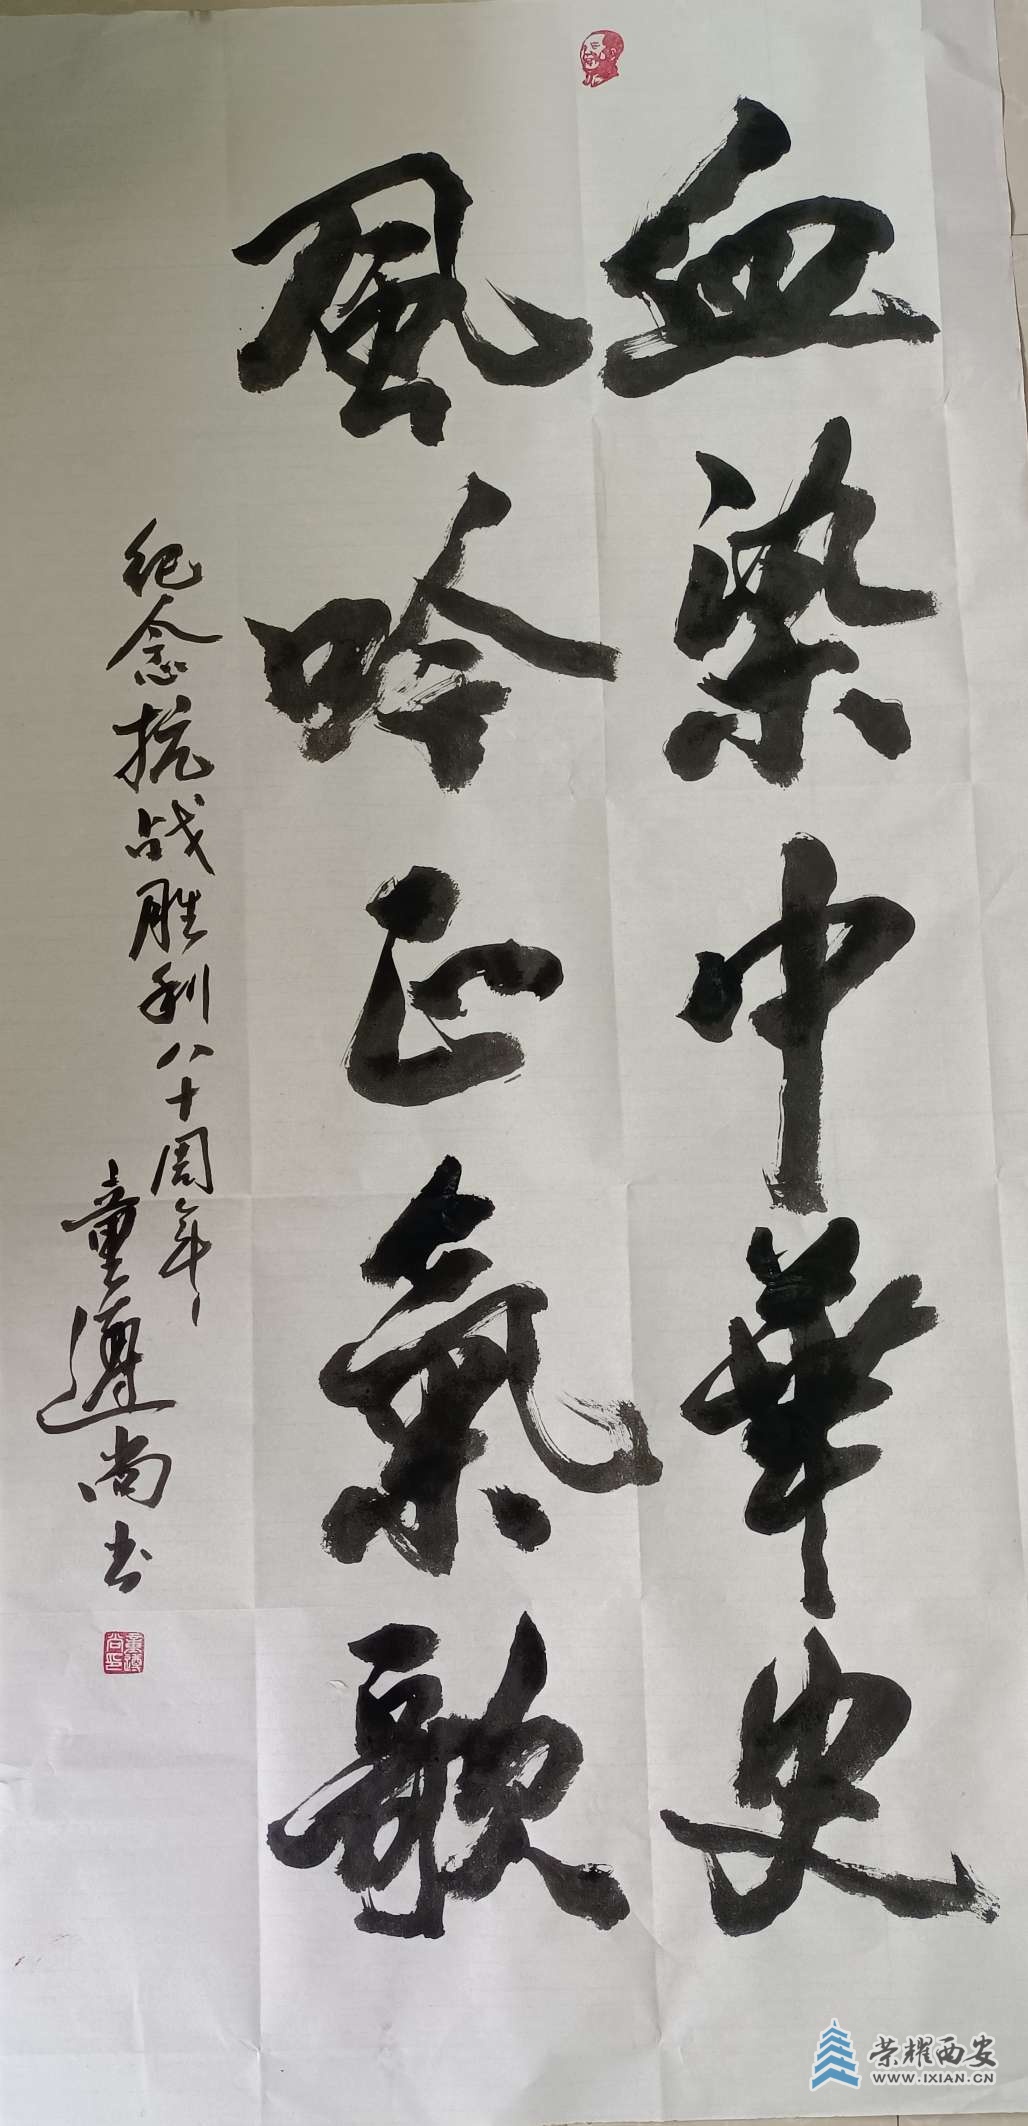 血染中華史
風吟正氣歌
纪念抗战胜利八十周年
童遵尚书
荣耀西安
WWW.IXIAN.CN